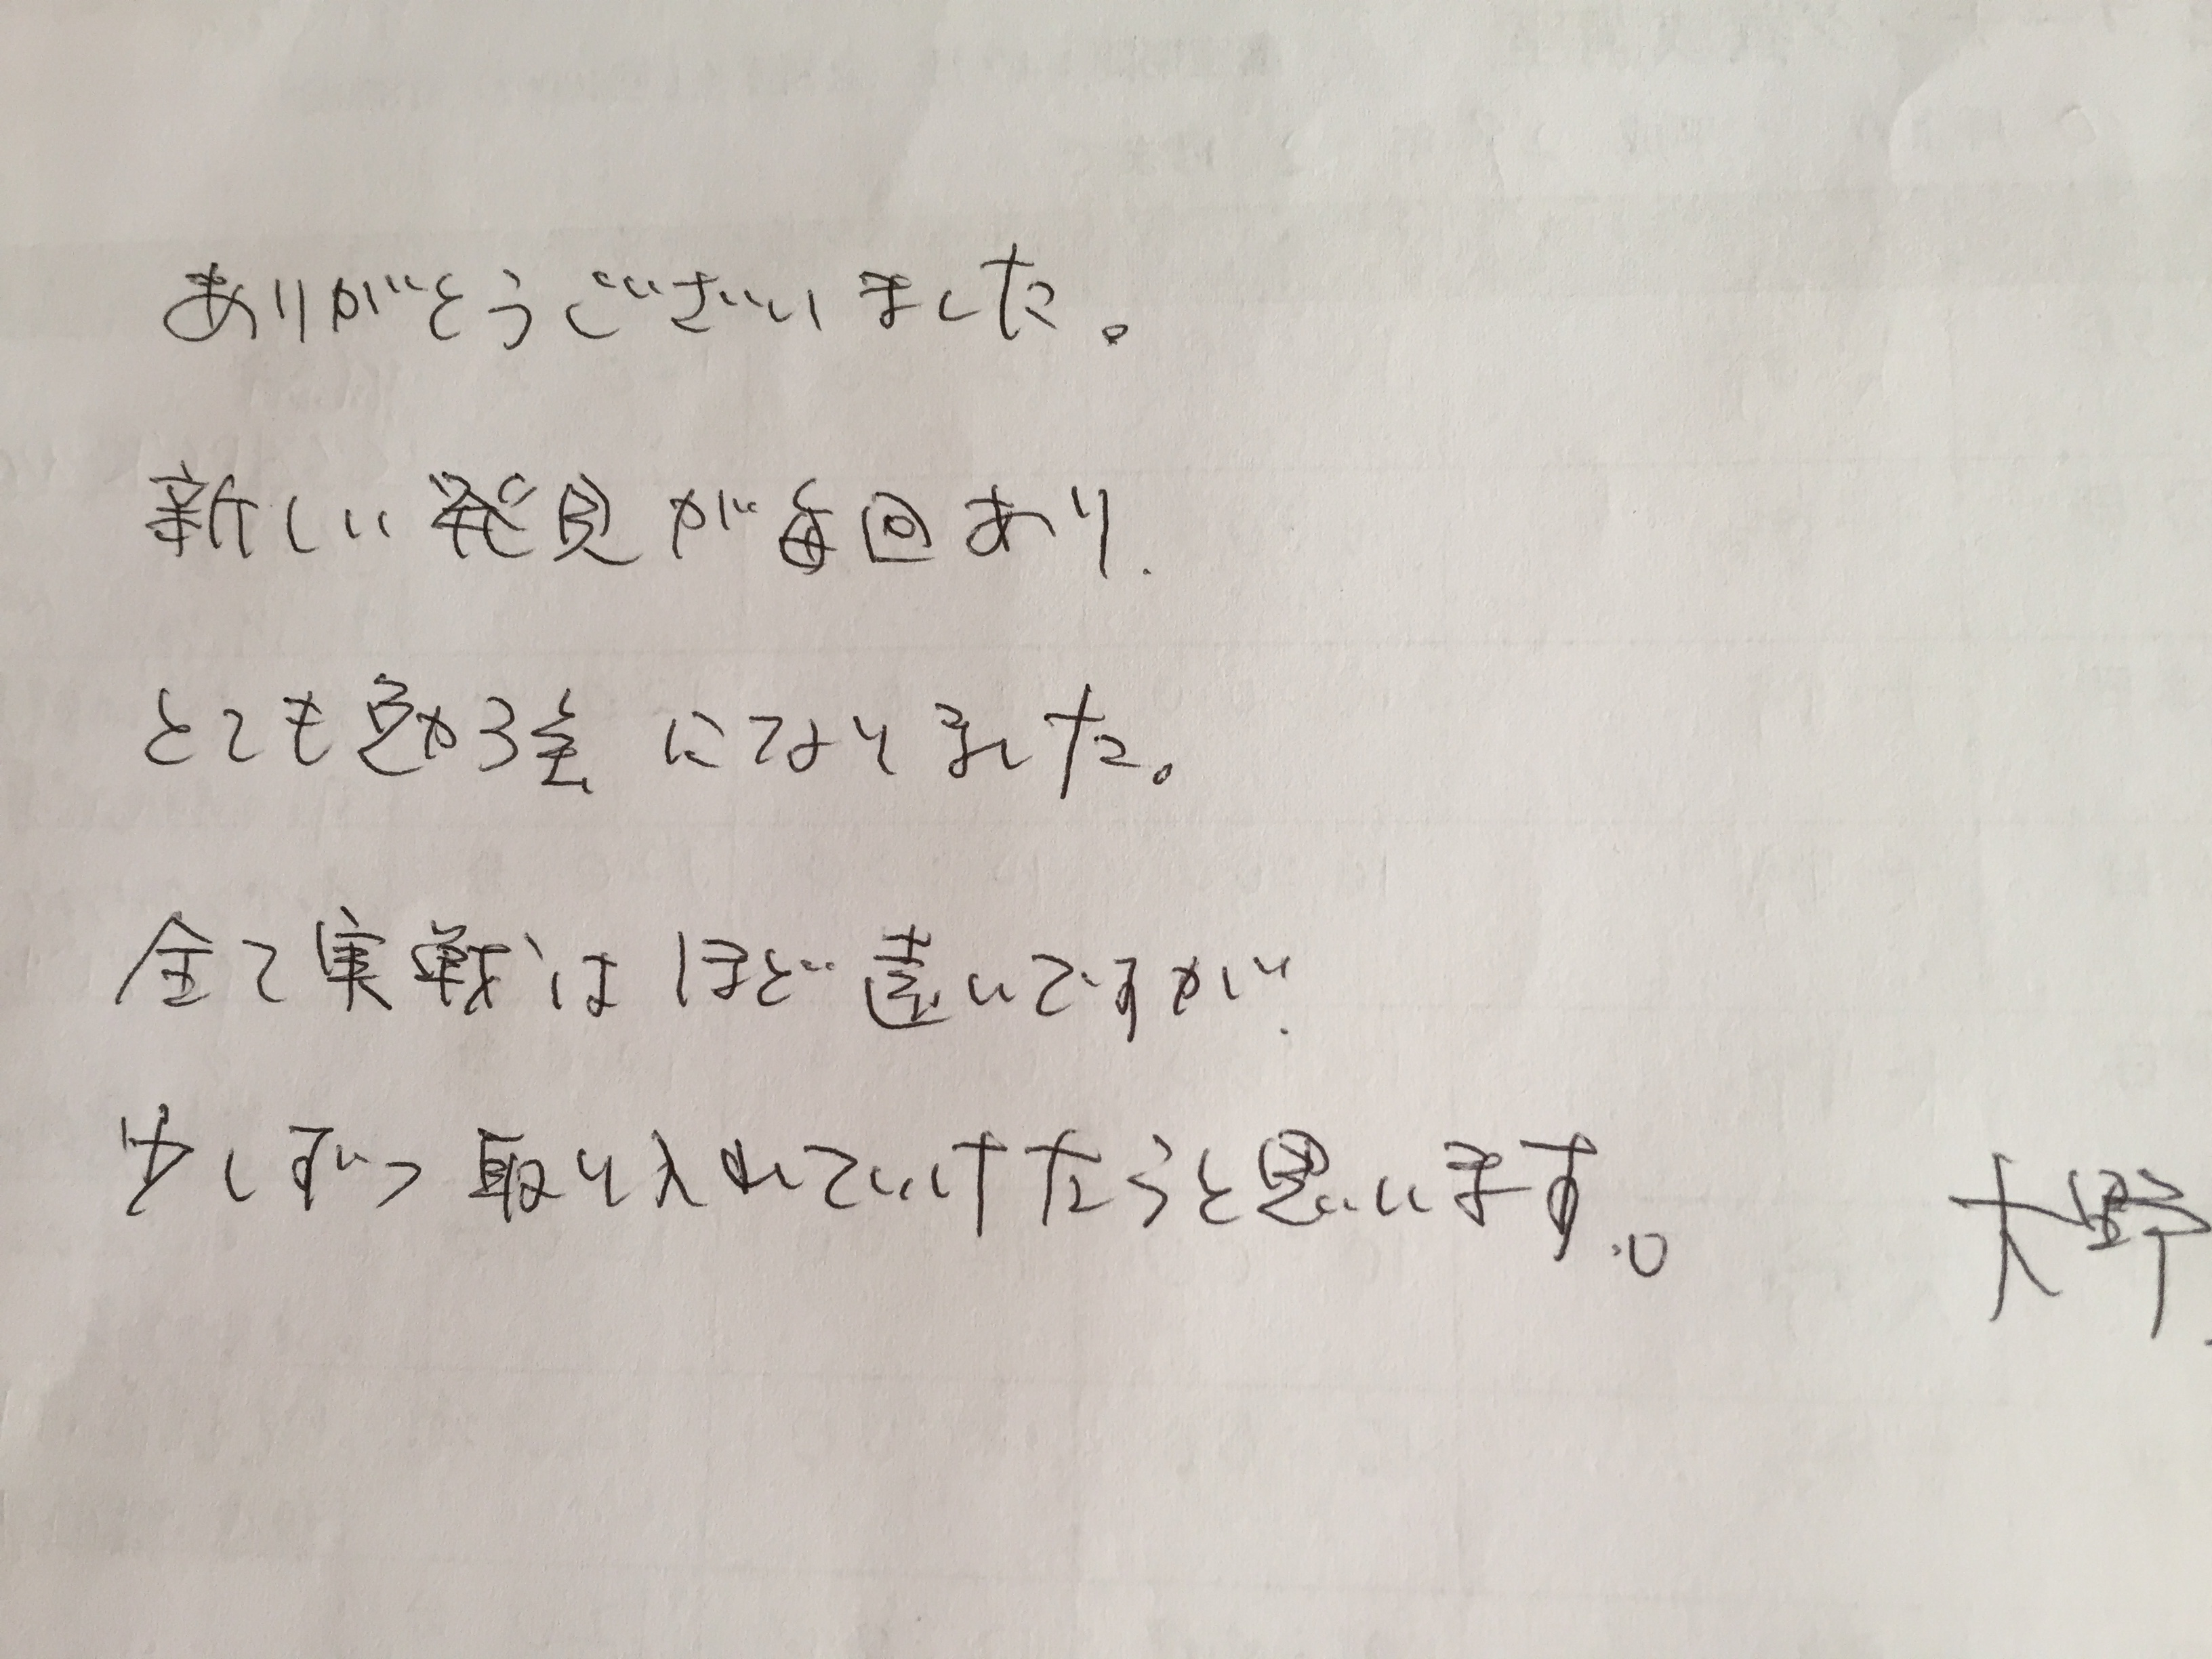 ありがとうございました。
新しい発見が毎回あり、
とても勉強になりました。
全て実戦はほど遠いですが、
少しずつ取り入れていけたらと思います。
大野